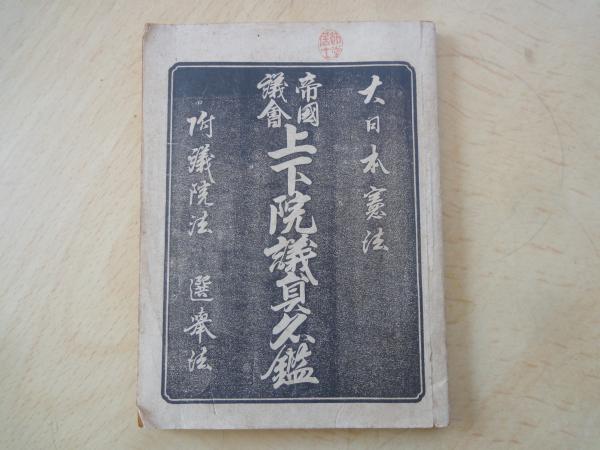 大日本憲法
帝國議會
上下院議員名鑑
附議院法 選擧法